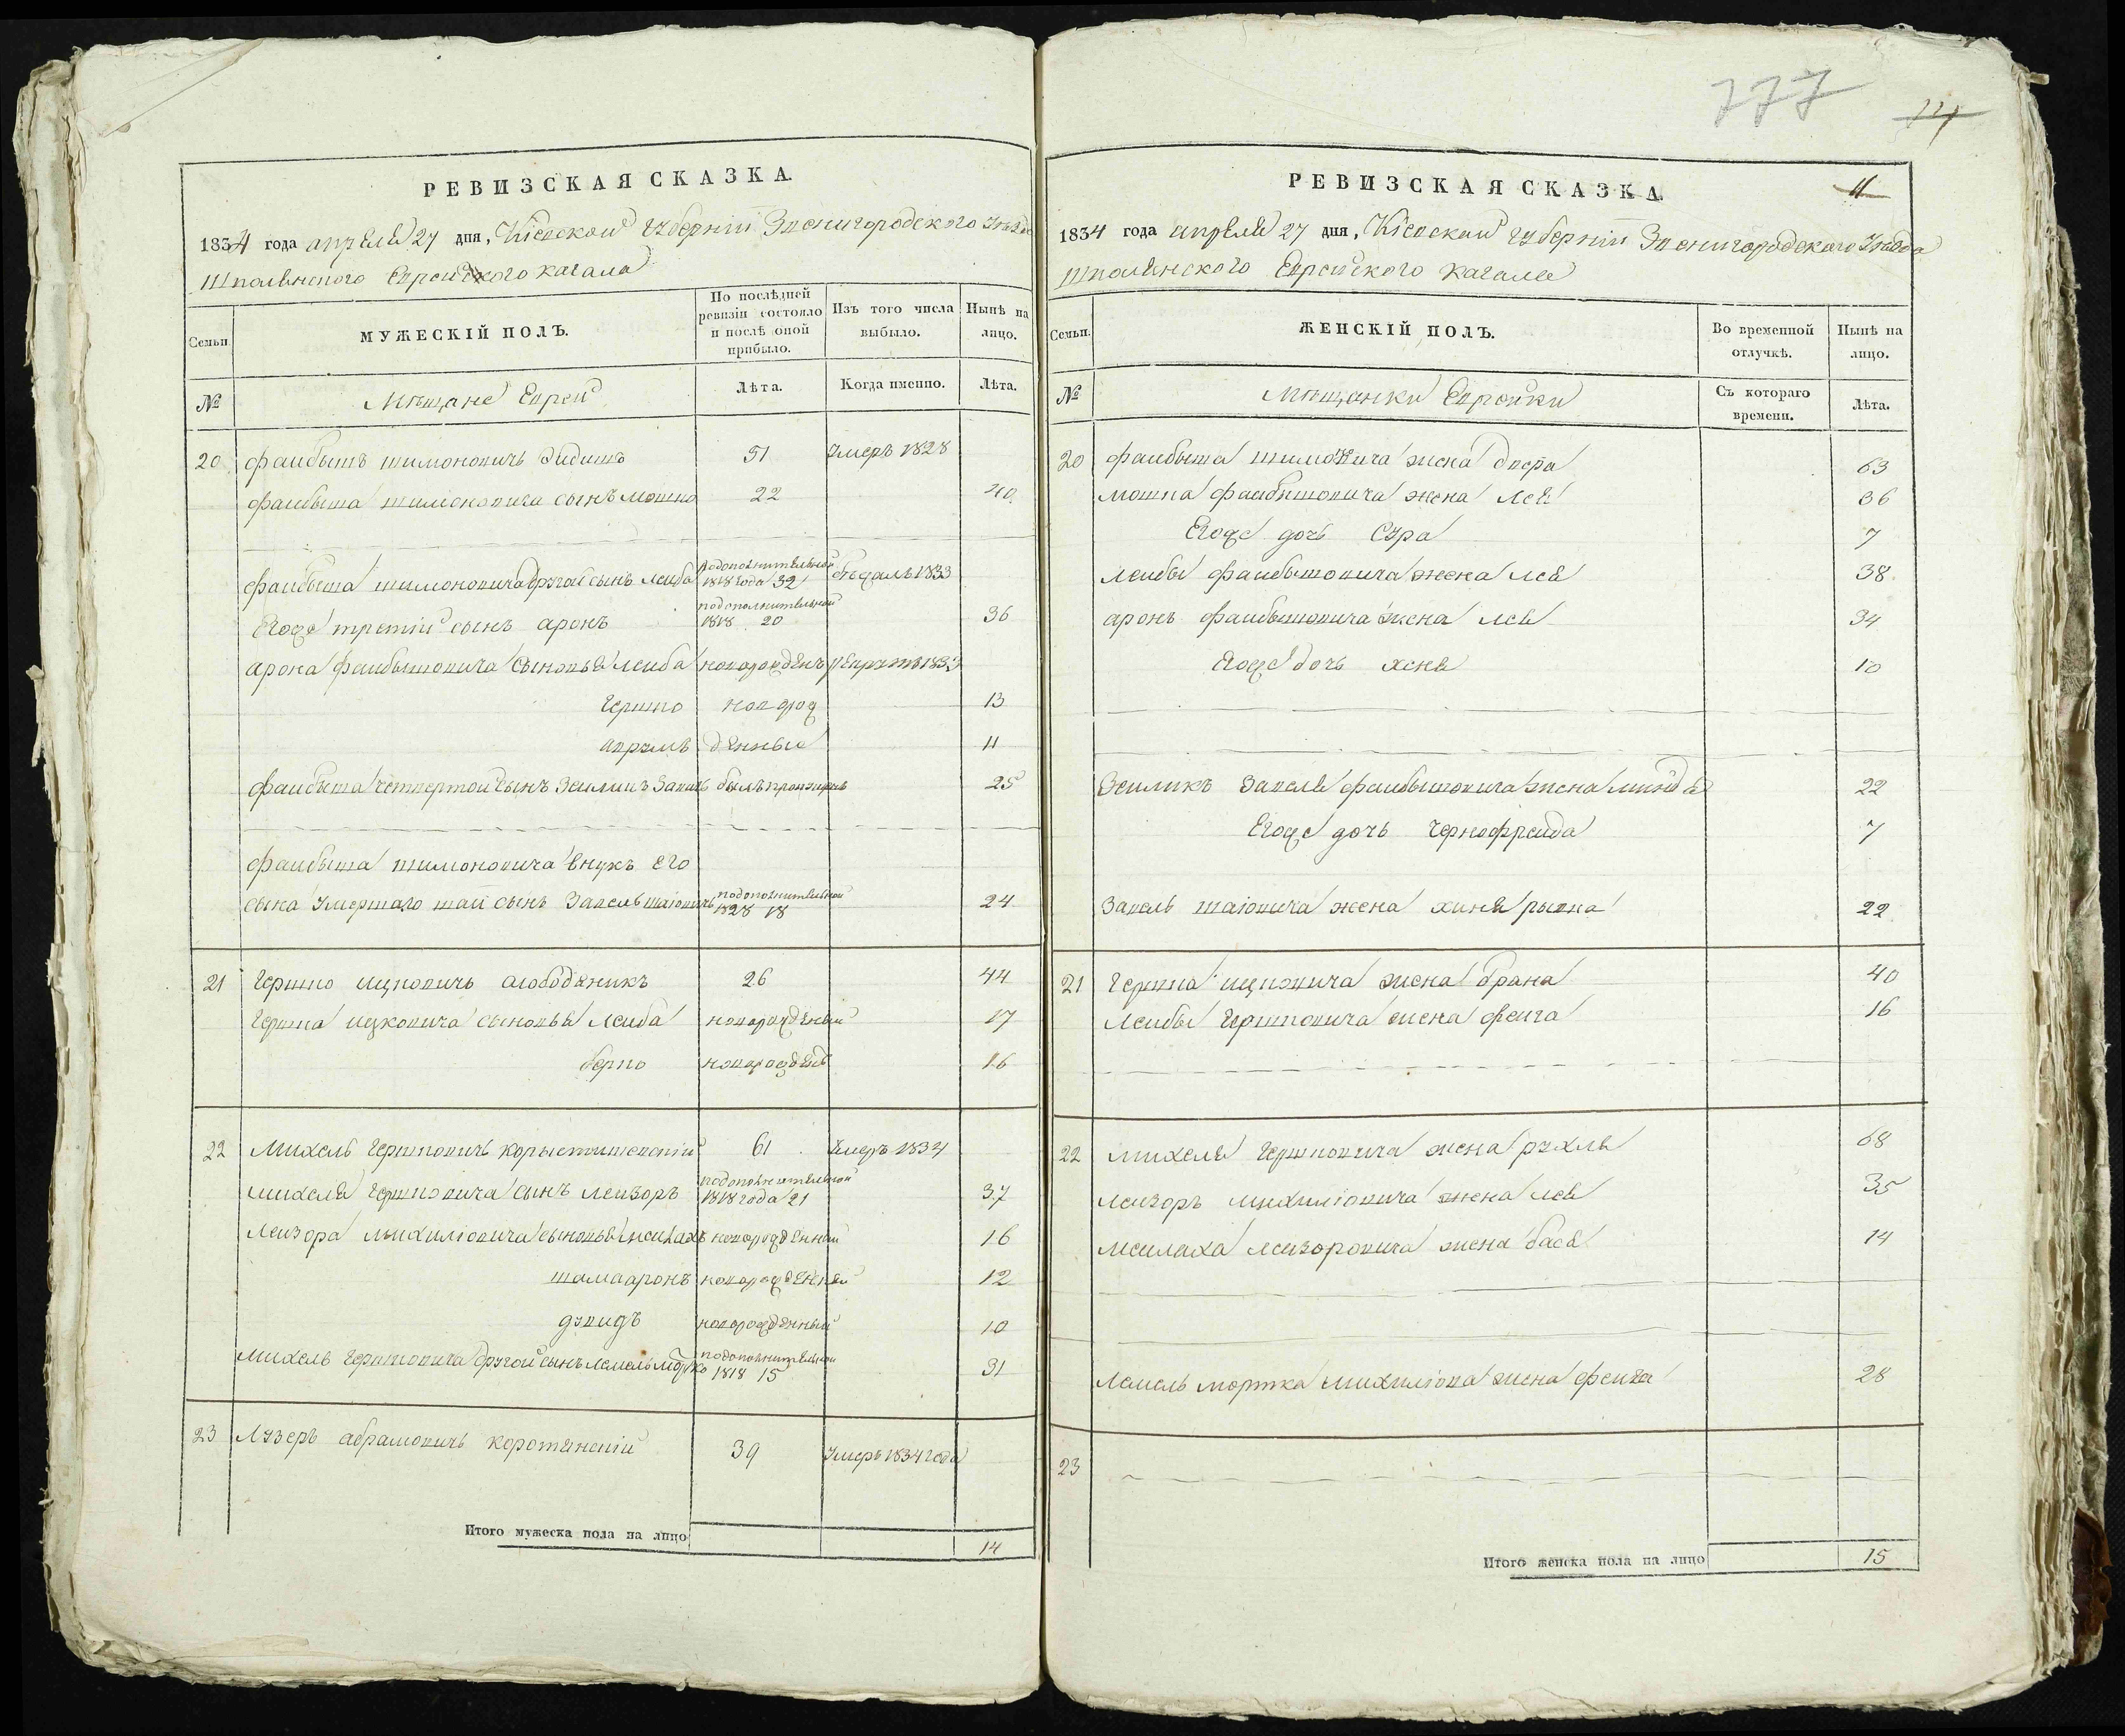 777
11
РЕВИЗСКАЯ СКАЗКА.
1834 года апреля 27 дня, Кіевской губерніи Звенигородского Уезда
Шполянского Еврейского кагала
Семьи
МУЖЕСКІЙ ПОЛЪ.
По послѣдней ревизіи состояло и послѣ оной прибыло.
Изъ того числа выбыло.
Нынѣ на лицо.
№
Мѣщане Евреи
Лѣта.
Когда именно.
Лѣта.
20 фаибышъ шимоновичь 51 Умеръ 1828
фаибыша шимоновича сынъ мошко 22 40
фаибыша шимоновича другой сынъ леиба подополнительной 1818 года 32 1833
Егоже третіи сынъ аронъ подополнительной 1818 20 36
арона фаибышовича сыновья леиба
гершко новорож 13
аврумъ денные 11
фаибыша четвертой сынъ Зеиликъ Завель былъ 25
фаибыша шимоновича внукъ его
сына Умершаго шаи сынъ Завель шаіовичь подополнительной 1828 18 24
21 Гершко ицковичь слободяникъ 26 44
Гершка ицковича сыновья леиба новорожденый 17
берко новорожден 16
22 Михель Гершковичь коростишевскіи 61 Умеръ 1834
михеля Гершковича сынъ леизоръ подополнительной 1818 года 21 37
Леизора михиліовича сыновья меилахъ новорожденный 16
шамааронъ новорожденный 12
дувидъ новорожденный 10
Михель Гершковича другой сынъ лемель мортко подополнительной 1818 15 31
23 Лузеръ абрамовичь коротянскіи 39 Умеръ 1834 года
Итого мужеска пола на лицо 14
РЕВИЗСКАЯ СКАЗКА.
1834 года апреля 27 дня, Кіевской губерніи Звенигородского Уезда
Шполянского Еврейского кагала
Семьи.
ЖЕНСКІЙ ПОЛЪ.
Во временной отлучкѣ.
Нынѣ на лицо.
№
Мѣщанки Евройки
Съ котораго времени.
Лѣта.
20 фаибыша шимовича жена двора 63
мошка фаибышовича жена лея 36
Егоже дочь Сура 7
леибы фаибышовича жена лея 38
аронъ фаибышовича жена лея 34
Егоже дочь хеня 10
Зеиликъ Завеля фаибышовича жена миндя 22
Егоже дочь чернофреида 7
Завель шаіовича жена хиня рывка 22
21 Гершка ицковича жена брана 40
Леибы Гершковича жена феига 16
22 михеля Гершковича жена рухля 68
леизоръ михиліовича жена лея 35
меилаха леизоровича жена бася 14
Лемель мортка михиліова жена феига 28
23
Итого женска пола на лицо 15